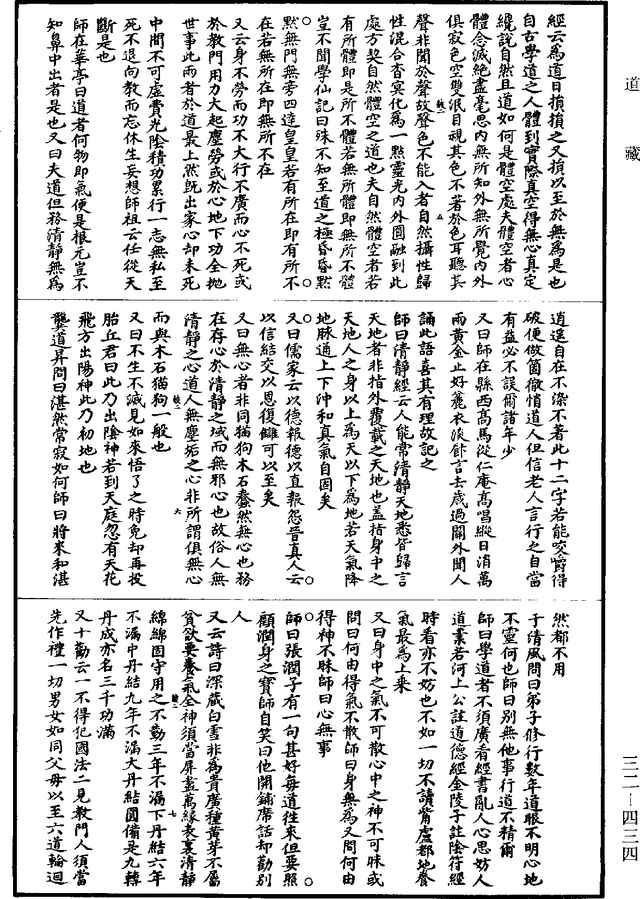 道藏
經云為道日損損之又損以至於無為是也
自古學道之人體到實際真空得無心真定
纔說自然且道如何是體空處夫體空者心
體念滅絕盡毫思內無所知外無所覺內外
俱寂色空雙泯目視其色不著於色耳聽其
聲非聞於聲故聲色不能入者自然攝性歸
性混合杳冥化為一點靈光內外圓融到此
處方契自然體空之道也夫自然體空者若
有所體即是所不體若無所體即無所不體
豈不聞學仙記曰殊不知至道之極昏昏默
默無門無旁四達皇皇若有所在即有所不
在若無所在即無所不在
又云身不勞而功不大行不廣而心不死或
於教門用力大起塵勞或於心地下功全拋
世事此兩者於道最上然既出家心却未死
中間不可虛費光陰積功累行一志無私至
死不退向教而忘休生妄想師祖云任從天
斷是也
師在華亭日道者何物即氣便是根元豈不
知鼻中出者是也又曰夫道但務清靜無為
逍遙自在不染不著此十二字若能咬嚼得
破便做箇徹悄道人但信老人言行之自當
有益必不誤爾諸年少
又曰師在縣西高馬從仁庵高唱縱日消萬
兩黃金止好麤衣淡飯言去歲過關外聞人
誦此語喜其有理故記之
師曰清靜經云人能常清靜天地悉皆歸言
天地者非指外覆載之天地也蓋指身中之
天地人之身以上為天以下為地若天氣降
地脉通上下沖和真氣自固矣
又曰儒家云以德報德以直報怨晉真人云
以信結交以恩復讎可以至矣
又曰無心者非同猫狗木石蠢然無心也務
在存心於清靜之域而無邪心也故俗人無
清靜之心道人無塵垢之心非所謂俱無心
而與木石猫狗一般也
又曰不生不滅見如來悟了之時免却再投
胎丘君曰此乃出陰神若到天庭忽有天花
飛方出陽神此乃初地也
龔道昇問曰湛然常寂如何師曰將來和湛
然都不用
于清風問曰弟子修行數年道眼不明心地
不靈何也師曰別無他事行道不精爾
師曰學道者不須廣看經書亂人心思妨人
道業若河上公註道德經金陵子註陰符經
時看亦不妨也不如一切不讀觜盧都地養
氣最為上乘
又曰身中之氣不可散心中之神不可昧或
問曰何由得氣不散師曰身無為又問何由
得神不昧師曰心無事
師曰張澗子有一句甚好每道往來但要照
顧澗身之寶師自笑曰他開鋪席話却勸別
人
又云詩曰深藏白雲非為貴廣種黃芽不屬
貧欲要養氣全神須當屏盡萬緣表裏清靜
綿綿固守用之不勤三年不漏下丹結六年
不漏中丹結九年不漏大丹結圓備是九轉
丹成亦名三千功滿
又十勸云一不得犯國法二見教門人須當
先作禮一切男女如同父母以至六道輪迴
三二—四三四